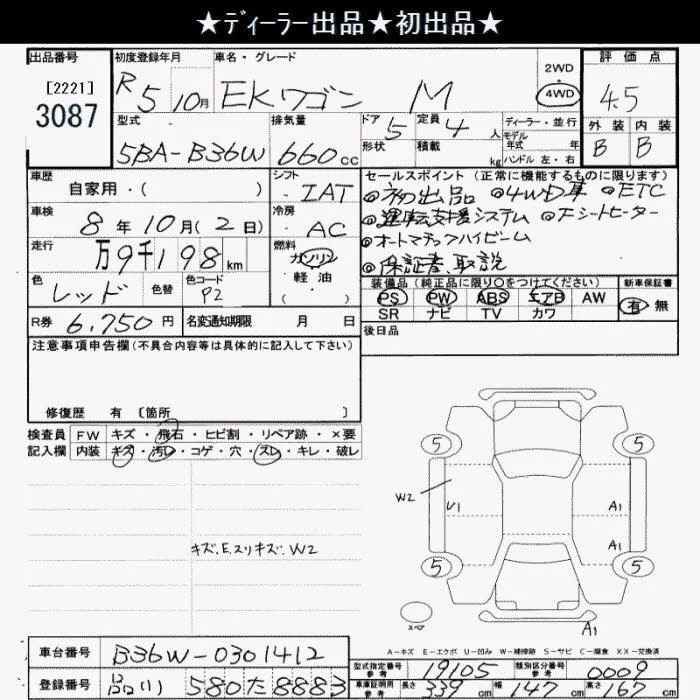 ★ディーラー出品★初出品★
出品番号
[2221]
3087
初度登録年月
R5 10月
車名・グレード
EKワゴン M
2WD
・
4WD
評価点
4.5
外装 内装
B B
型式
5BA-B36W
排気量
660cc
ドア 5
定員 4人
形状
積載 kg
ディーラー・並行
モデル年式 年
ハンドル 左・右
車歴
自家用・( )
シフト
IAT
セールスポイント(正常に機能するものに限ります)
◎初出品 ◎4WD車 ◎ETC
◎運転支援システム ◎Fシートヒーター
◎オートマチックハイビーム
◎保証書、取説
車検
8年10月(2日)
冷房
AC
走行
万9千198km
燃料
ガソリン
軽油
( ・ )
色
レッド
色替
色コード
P2
装備品(純正品に限り○をつけてください)
PS PW ABS エアB AW
SR ナビ TV カワ
新車保証書
有・無
R券 6,750円
名変通知期限 月 日
後日品
注意事項申告欄(不具合内容等は具体的に記入して下さい)
修復歴 有 〔箇所 〕
検査員記入欄
FW キズ・飛石・ヒビ割・リペア跡・×要
内装 キズ・汚レ・コゲ・穴・スレ・キレ・破レ
キズ、E、スリキズ、W2
5 5
W2
U1 A1
A1
5 5
スペア
A1
A-キズ E-エクボ U-凹み W-補修跡 S-サビ C-腐食 XX-交換済
車台番号 B36W-0301412
型式指定番号 参考 19105
類別区分番号 参考 0009
登録番号 580た8883
車庫証明用 参考 長さ 339cm 幅 147cm 高さ 167cm